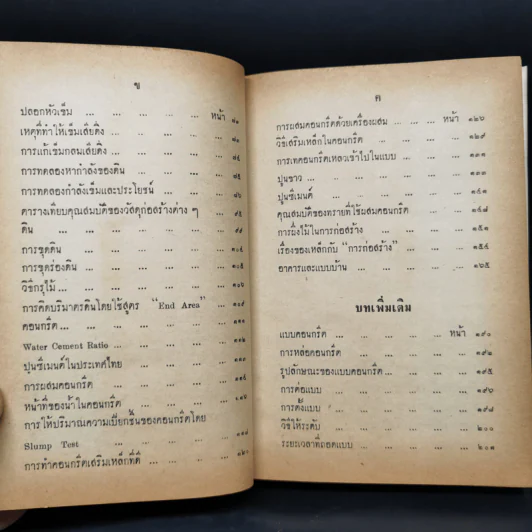 ข
ปลอกหัวเข็ม ... ... ... ... หน้า ๘๑
เหตุที่ทำให้เข็มเสียดิ่ง ... ... ... ...
การแก้เข็มกลมเสียดิ่ง ... ... ... ... ๘๕
การทดลองหากำลังของดิน ... ... ... ๘๕
การทดลองกำลังเข็มและประโยชน์ ... ... ...
ตารางเทียบคุณสมบัติของวัสดุก่อสร้างต่าง ๆ ๙๕
ดิน ... ... ... ... ...
การขุดดิน ... ... ... ... ๑๐๔
การขุดร่องดิน ... ... ... ...
วิธีกรุไม้ ... ... ... ...
การคิดปริมาตรดินโดยใช้สูตร “End Area” ... ๑๐๙
คอนกรีต ... ... ... ... ...
Water Cement Ratio ... ... ... ...
ปูนซิเมนต์ในประเทศไทย ... ... ...
การผสมคอนกรีต ... ... ... ... ๑๑๕
หน้าที่ของน้ำในคอนกรีต ... ... ... ๑๑๖
การให้ปริมาณความเปียกชื้นของคอนกรีตโดย
Slump Test ... ... ... ...
การทำคอนกรีตเสริมเหล็กที่ดี ... ... ... ๑๒๐
ค
การผสมคอนกรีตด้วยเครื่องผสม ... ... ... หน้า ๑๒๖
วิธีเสริมเหล็กในคอนกรีต ... ... ... ๑๒๙
การเทคอนกรีตเหลวเข้าไปในแบบ ... ... ... ๑๓๑
ปูนขาว ... ... ... ... ... ๑๓๓
ปูนซิเมนต์ ... ... ... ... ๑๔๑
คุณสมบัติของทรายที่ใช้ผสมคอนกรีต ... ... ๑๔๘
การผึ่งไม้ในการก่อสร้าง ... ... ... ๑๕๑
เรื่องของเหล็กกับ “การก่อสร้าง” ... ... ... ๑๕๔
อาคารและแบบบ้าน ... ... ... ๑๖๕
บทเพิ่มเติม
แบบคอนกรีต ... ... ... ... หน้า ๑๙๐
การหล่อคอนกรีต ... ... ... ... ๑๙๒
รูปลักษณะของแบบคอนกรีต ... ... ... ๑๙๕
การต่อแบบ ... ... ... ... ๑๙๖
การตั้งแบบ ... ... ... ... ๑๙๘
วิธีให้ระดับ ... ... ... ... ๒๐๐
ระยะเวลาที่ถอดแบบ ... ... ... ๒๐๑